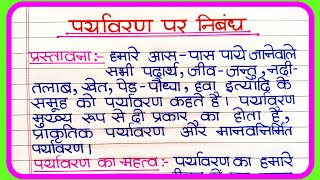 पर्यावरण पर निबंध
प्रस्तावना:- हमारे आस-पास पाये जानेवाले
सभी पदार्थ, जीव-जन्तु, नदी-
तलाब, खेत, पेड़-पौध्या, हवा इत्यादि के
समूह को पर्यावरण कहते हैं। पर्यावरण
मुख्य रूप से दो प्रकार का होता है,
प्राकृतिक पर्यावरण और मानवनिर्मित
पर्यावरण।
पर्यावरण का महत्व:- पर्यावरण का हमारे